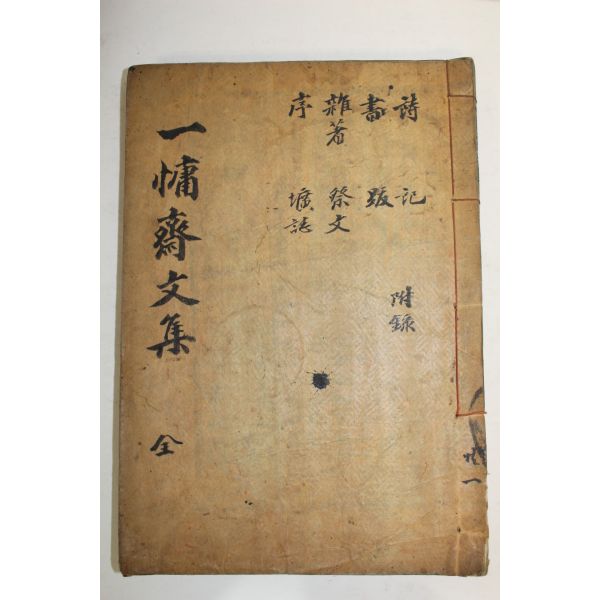 詩 記 附錄
書 跋
雜著 祭文
序 壙誌
一慵齋文集 全
共一